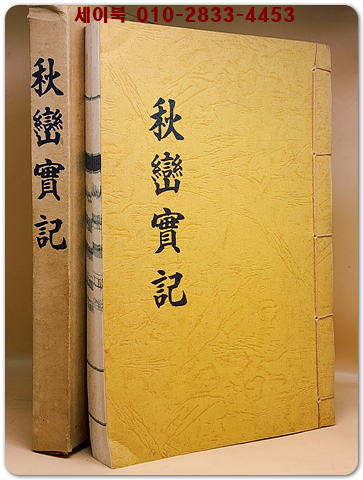 세이북 010-2833-4453
秋巒實記
秋巒實記